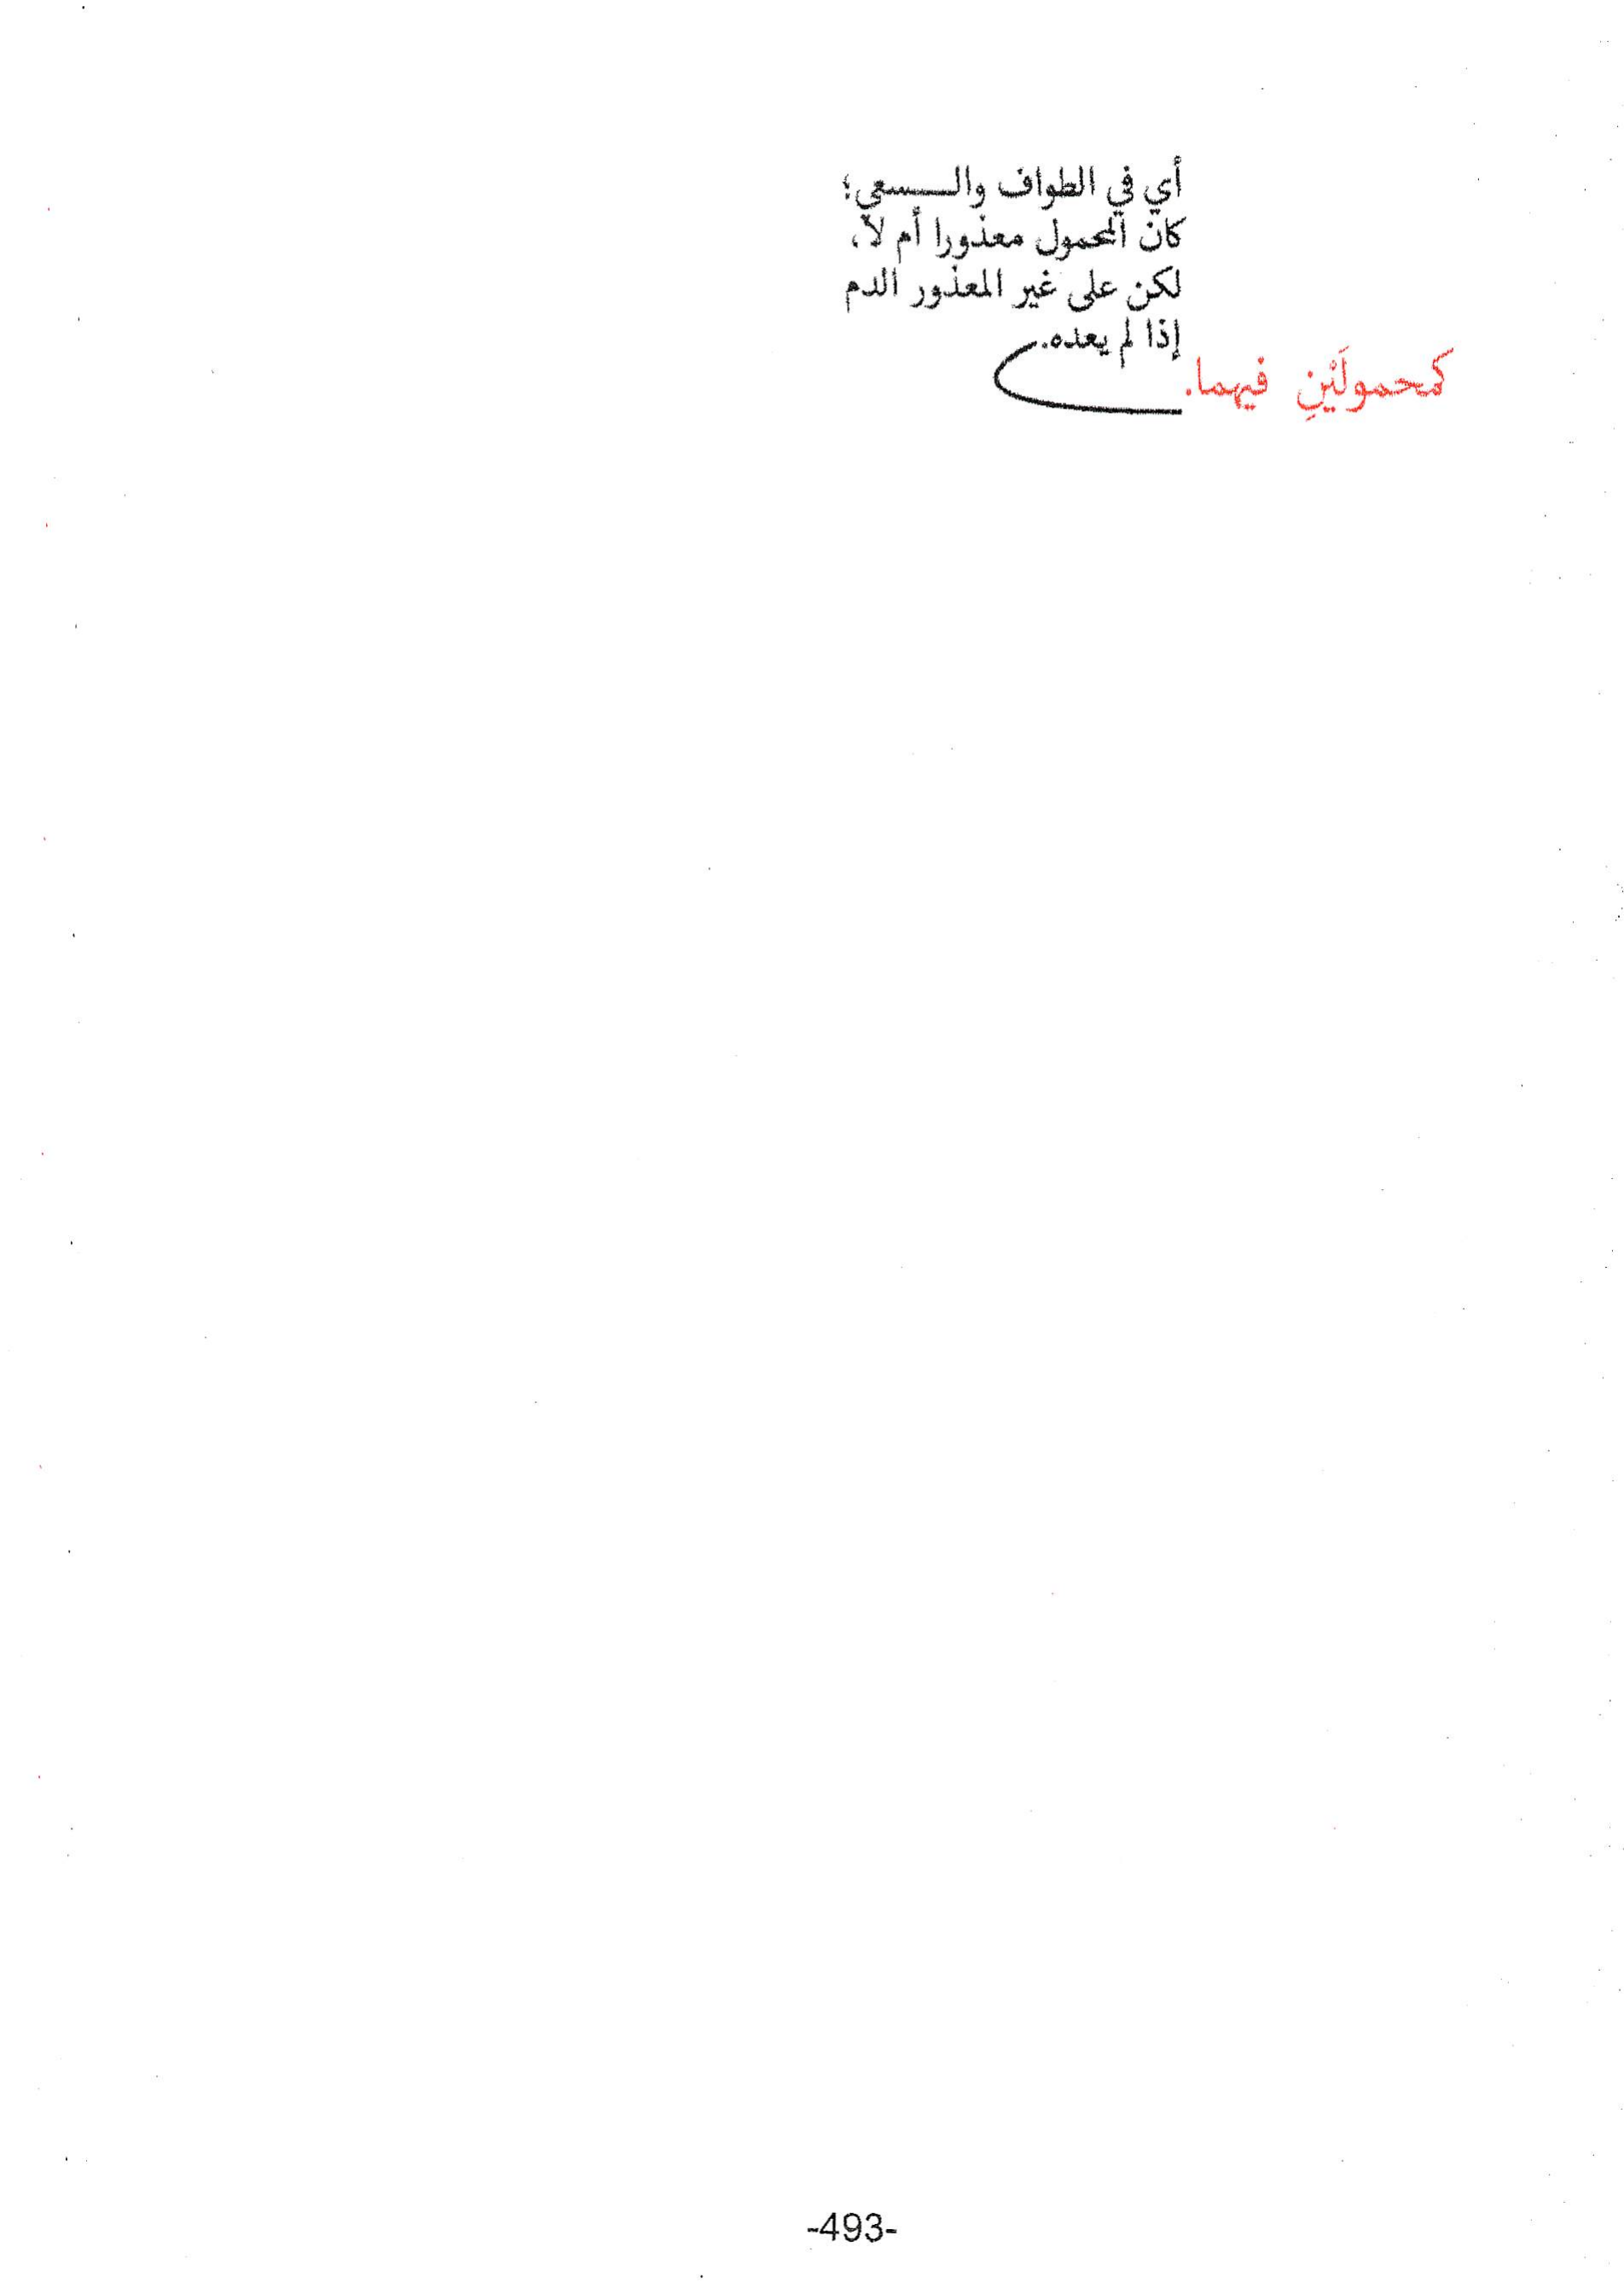 أي في الطواف والسعي؛
كان المحمول معذورا أم لا،
لكن على غير المعذور الدم
إذا لم يعده.
كمحمولَيْنِ فيهما.
-493-